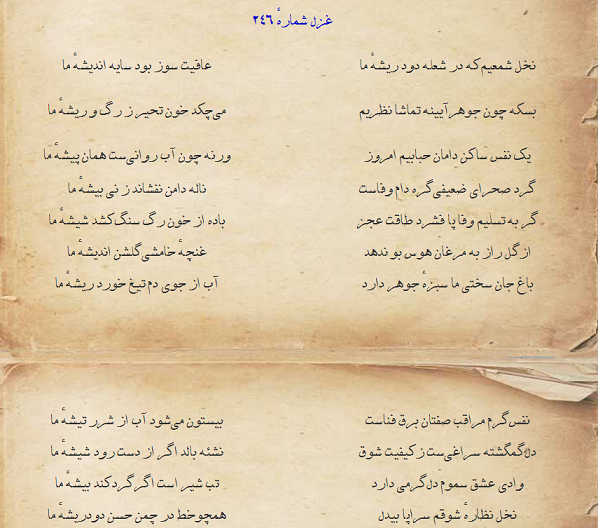 غزل شمارهٔ ۲۴۶
نخل شمعیم‌که در شعله دود ریشهٔ ما عافیت سوز بود سایه اندیشهٔ ما
بسکه چون جوهر آیینه تماشا نظریم می‌چکد خون تحیر ز رگ و ریشهٔ ما
یک نفس ساکن دامان حبابیم امروز ورنه چون آب روانی‌ست همان پیشهٔ ما
گرد صحرای ضعیفی‌گره دام وفاست ناله دامن نفشاند ز نی بیشهٔ ما
گر به تسلیم وفا پا فشرد طاقت عجز باده از خون رگ سنگ‌کشد شیشهٔ ما
ازگل راز به مرغان هوس بو ندهد غنچهٔ خامشی‌گلشن اندیشهٔ ما
باغ جان سختی ما سبزهٔ جوهر دارد آب از جوی دم تیغ خورد ریشهٔ ما
نفس‌گرم مراقب صفتان برق فناست بیستون می‌شود آب از شرر تیشهٔ ما
دل‌گمگشته سراغی‌ست زکیفیت شوق نشئه بالد اگر از دست رود شیشهٔ ما
وادی عشق سموم دل‌گرمی دارد تب شیر است اگرگرد کند بیشهٔ ما
نخل نظارهٔ شوقم سراپا بیدل همچوخط در چمن حسن دودریشهٔ ما